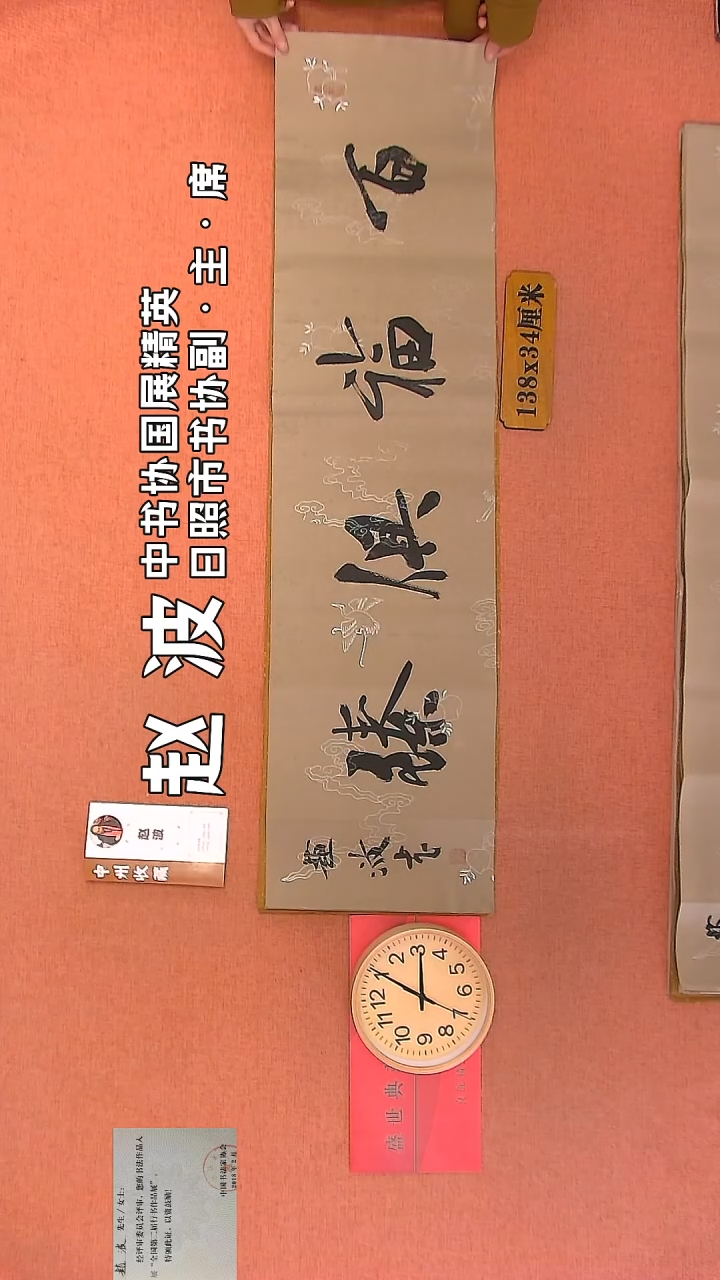 赵波
中书协国展精英
日照市书协副·主·席
百福俱臻
趙波书
138x34厘米
赵波
中州收展
12
1
2
3
4
5
6
7
8
9
10
11
盛世典
趙波 先生／女士：
经评审委员会评审，您的书法作品入
展“全国第二届行书作品展”。
特颁此证，以资鼓励！
中国书法家协会